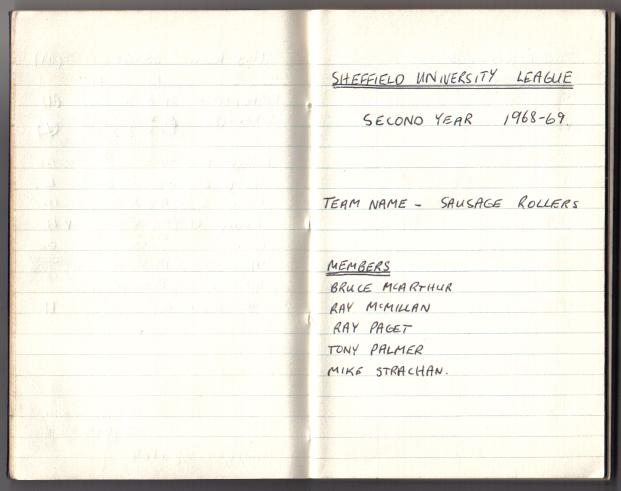 SHEFFIELD UNIVERSITY LEAGUE
SECOND YEAR 1968-69.
TEAM NAME - SAUSAGE ROLLERS
MEMBERS
BRUCE MCARTHUR
RAY MCMILLAN
RAY PAGET
TONY PALMER
MIKE STRACHAN.